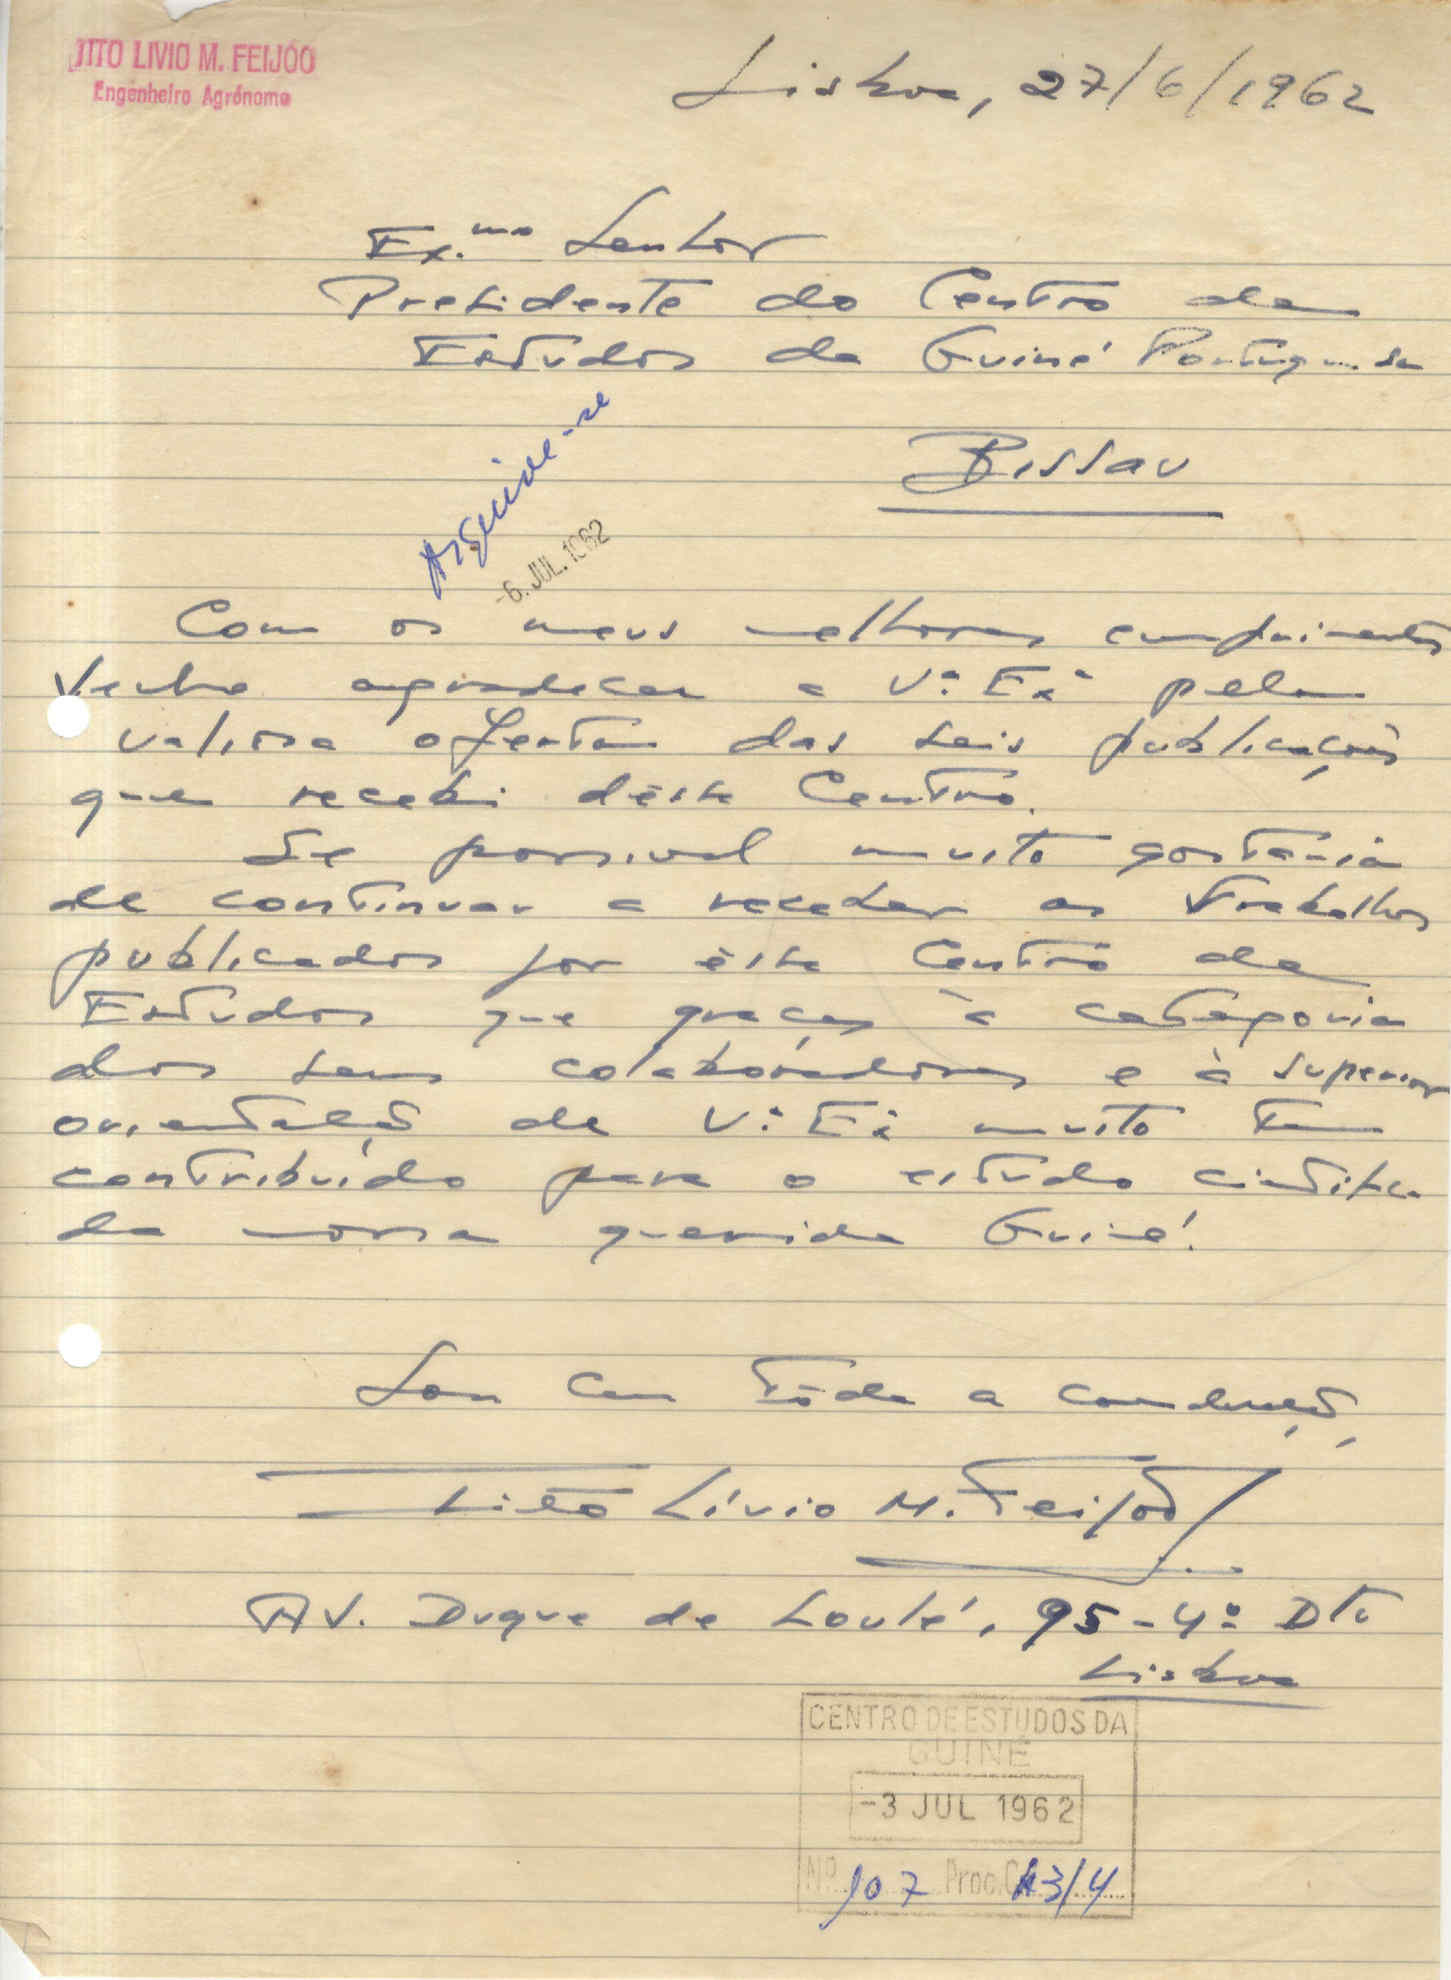 TITO LIVIO M. FEIJÓO
Engenheiro Agrónomo
Lisboa, 27/6/1962
Ex.mo Senhor
Presidente do Centro de
Estudos da Guiné Portuguesa
Bissau
Arquive-se
-6. JUL. 1962
Com os meus melhores cumprimentos
Venho agradecer a V.ª Exª pela
valiosa oferta das seis publicações
que recebi dêste Centro.
Se possivel muito gostaria
de continuar a receber os trabalhos
publicados por êste Centro de
Estudos que graças à categoria
dos seus colaboradores e à superior
orientação de V.ª Exª muito tem
contribuído para o estudo cientifico
da nossa querida Guiné.
Sou com tôda a consideração,
Tito Lívio M. Feijóo
AV. Duque de Loulé, 95-4º Dto
Lisboa
CENTRO DE ESTUDOS DA
GUINÉ
-3 JUL 1962
Nº 107 Proc. 3/4